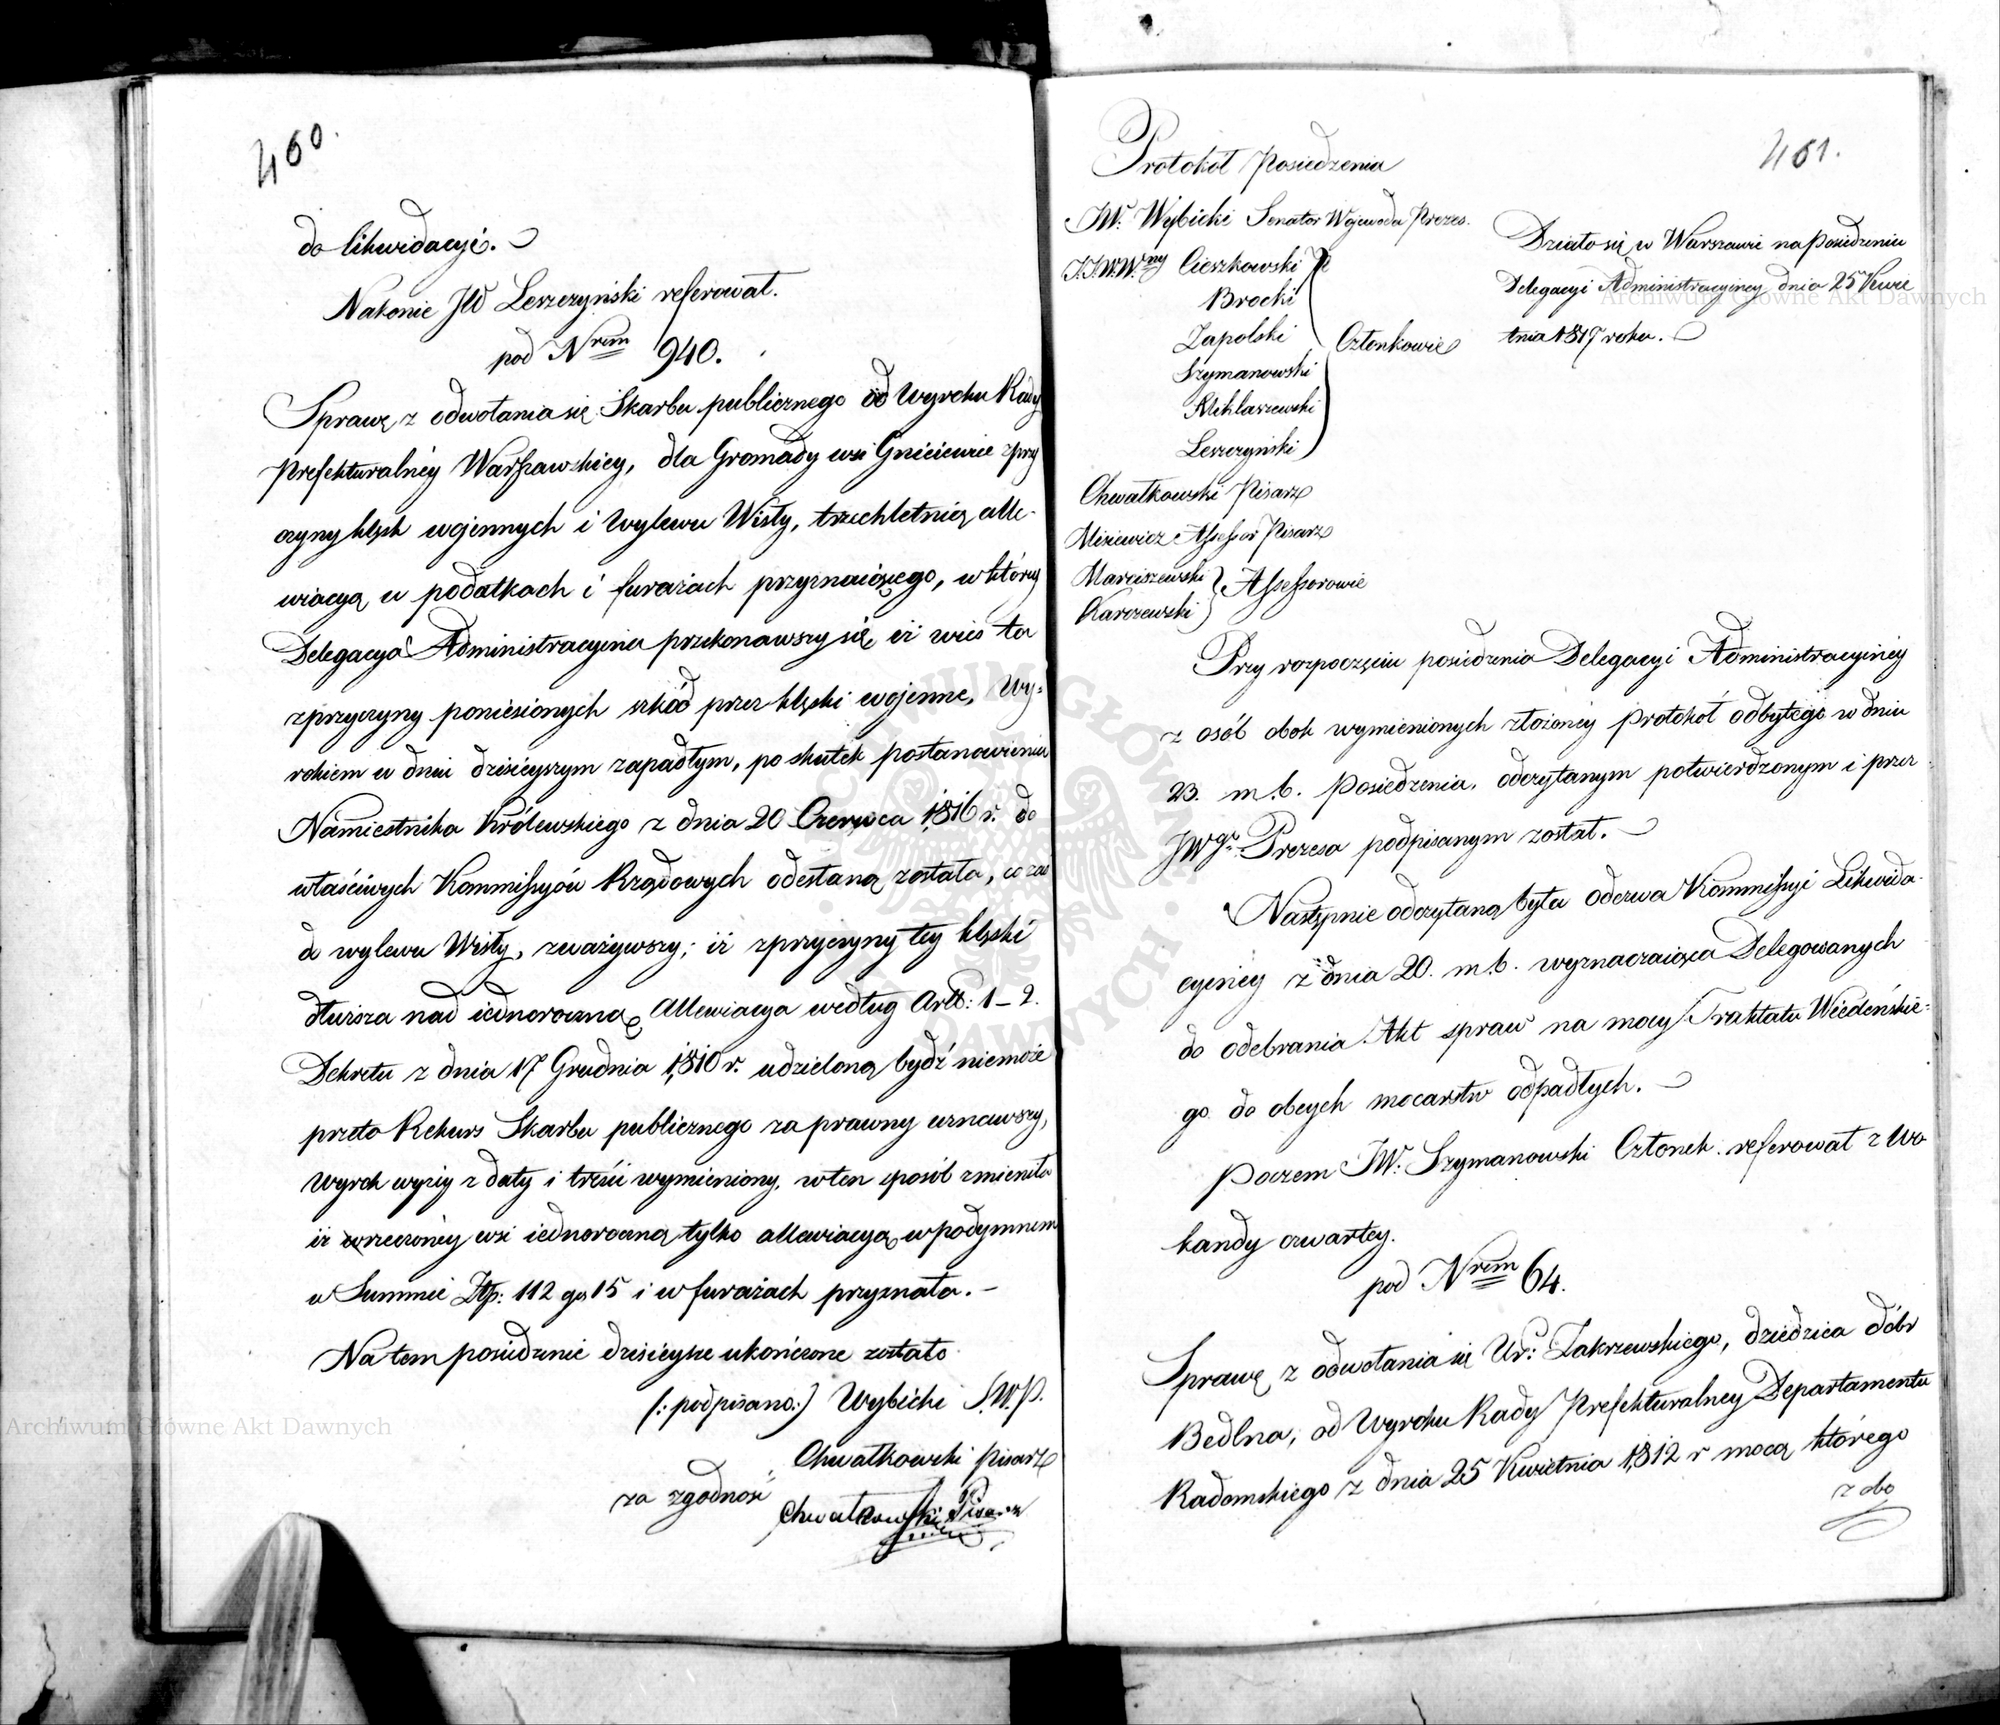 460.
do likwidacyi.
Nakonie JW Leszczyński referował.
pod Nrem 940.
Sprawę z odwołania się Skarbu publicznego od Wyroku Rady
Prefekturalnéy Warszawskiey, dla Gromady wsi Gniciewice zprzy
czyny klęsk wojennych i Wylewu Wisły, trzechletnią alle-
wiacyą w podatkach i furażach przyznaiącego, w któréy
Delegacya Administracyina przekonawszy się iż wieś ta
zprzyczyny poniesionych szkód przez klęski wojenne, Wy-
rokiem w dniu dzisieyszym zapadłym, po skutek postanowienia
Namiestnika Królewskiego z dnia 20 Czerwca 1816 r. do
właściwych Kommissyów Rządowych odesłaną została, co zaś
do wylewu Wisły, zważywszy; iż zprzyczyny téy klęski
dłuższa nad iednoroczną Allewiacya według Artt: 1-2.
Dekretu z dnia 17 Grudnia 1810 r. udzieloną bydź niemoże
przeto Rekurs Skarbu publicznego za prawny uznawszy,
Wyrok wyżéy z daty i treści wymieniony, wten sposób zmieniła
iż rzeczonéy wsi iednoroczną tylko allewiacyą w podymnem
w Summie Złp: 112 gr 15 i w furażach przyznała. -
Na tem posiedzenie dzisieysze ukończone zostało
(: podpisano :) Wybicki S.W.P.
Chwałkowski Pisarz
za zgodność
Chwałkowski Pisarz
461.
Protokół Posiedzenia
JW. Wybicki Senator Wojewoda Prezes.
J.J.W.W.ny Cieszkowski
Brocki
Zapolski
Szymanowski
Miklaszewski
Leszczyński
Członkowie
Chwałkowski Pisarz
Misiewicz Assessor Pisarz
Marciszewski
Karczewski
Assessorowie
Działo się w Warszawie na Posiedzeniu
Delegacyi Administracyiney dnia 25 Kwie
tnia 1817 roku.
Przy rozpoczęciu posiedzenia Delegacyi Administracyinéy
z osób obok wymienionych złożonéy protokół odbytego w dniu
23. m.b. Posiedzenia, odczytanym potwierdzonym i przez
JWgo Prezesa podpisanym został.
Następnie odczytaną była odezwa Kommissyi Likwida-
cyinéy z dnia 20. m.b. wyznaczaiąca Delegowanych
do odebrania Akt spraw na mocy Traktatu Wiedeńskie-
go do obcych mocarstw odpadłych.
Poczem JW. Szymanowski Członek referował z Wo
kandy czwartey.
pod Nrem 64.
Sprawę z odwołania się Ur: Zakrzewskiego, dziedzica dóbr
Bedlna, od Wyroku Rady Prefekturalney Departamentu
Radomskiego z dnia 25 Kwietnia 1812 r mocą którego
z obo
Archiwum Główne Akt Dawnych
Archiwum Główne Akt Dawnych
ARCHIWUM GŁÓWNE AKT DAWNYCH